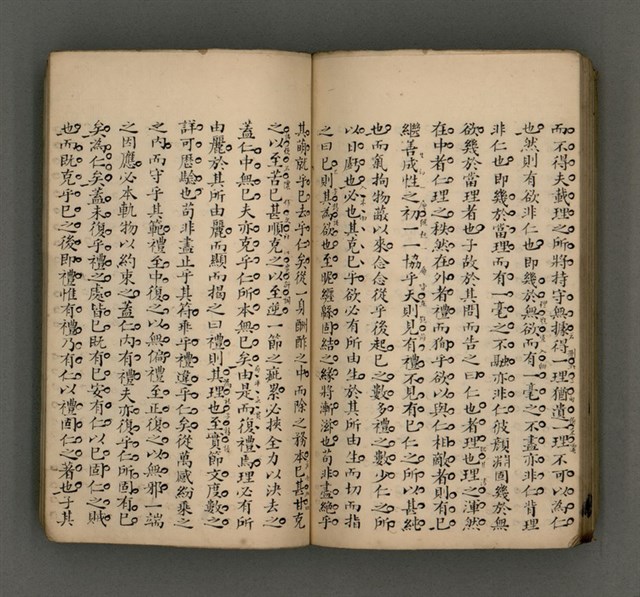 而不得夫載理之所將持守無據得一理猶遺一理不可以為仁
也然則有欲非仁也即幾於無欲而有一毫之不盡亦非仁背理
非仁也即幾於當理而有一毫之不融亦非仁彼顏淵固幾於無
欲幾於當理者也子故於其問而告之曰仁也者理也理之渾然
在中者仁理之秩然在外者禮而狥乎欲以與仁相敵者則有己
繼善成性之初一一協乎天則見有禮不見有己仁之所以甚純
也而氣拘物敵以來念念從乎後起己之數多禮之數少仁之所
以日虧也必也其克己乎欲必有所由生於其所由生而切而指
之曰己則其為欲也至昵纏緜固結之緣將漸滋也苟非盡絶乎
其萌就乎己去乎仁矣從一身酬酢之中而除之務本己甚甘克
之以至苦己甚順克之以至逆一節之疵累必挾全力以決去之
蓋仁中無己夫亦克乎仁所本無己矣由是而復禮焉理必有所
由麗於其所由麗而顯而揭之曰禮則其理也至實節文度數之
詳可歷驗也苟非盡止乎其符乖乎禮違乎仁矣從萬感紛乘之
之内而守乎其範禮至中復之以無偏禮至正復之以無邪一端
之因應必本軌物以約束之蓋仁内有禮夫亦復乎仁所固有已
矣為仁矣蓋未復乎禮之處皆己既有己安有仁以己固仁之賊
也而既克乎己之後即禮惟有禮乃有仁以禮固仁之著也子其